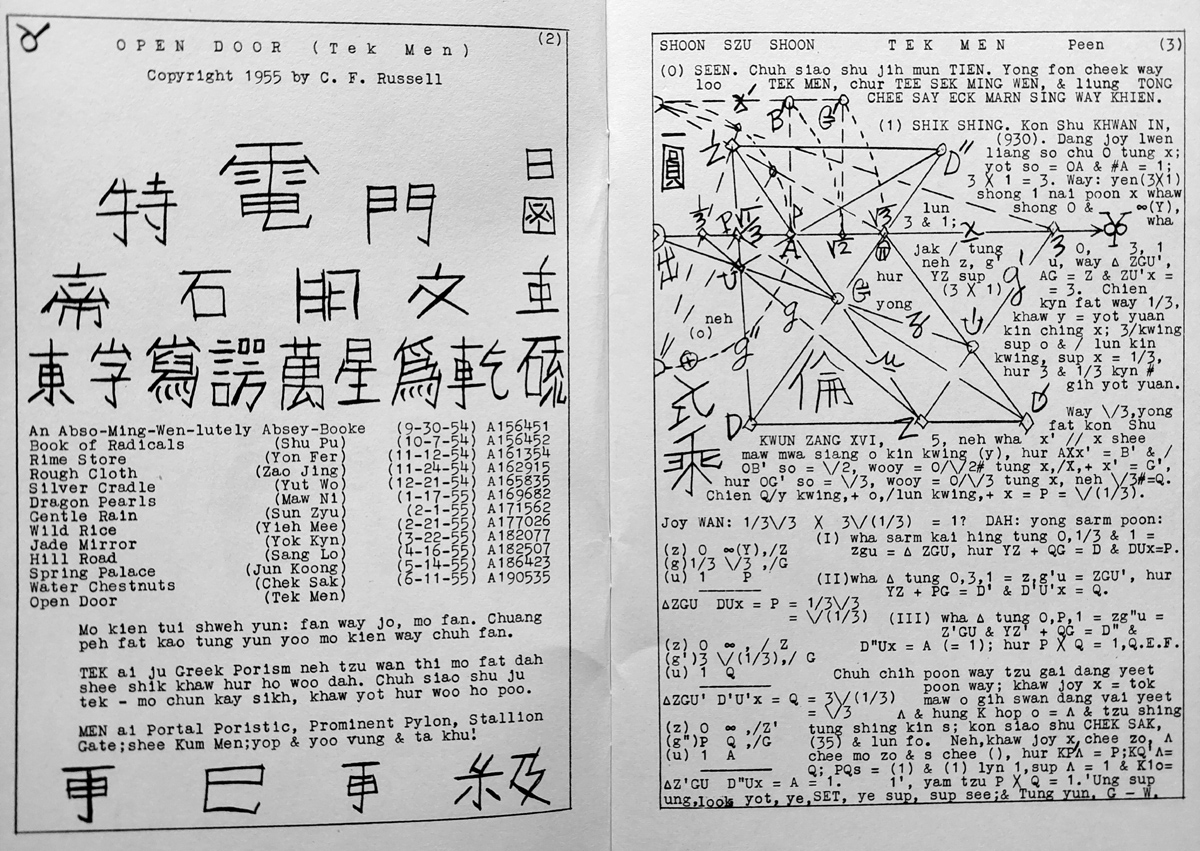 OPEN DOOR (Tek Men) (2)
Copyright 1955 by C. F. Russell
特 電 門 日
帝 石 開 文 主
東 字 寫 謗 萬 星 爲 乾 硫
An Abso-Ming-Wen-lutely Absey-Booke (9-30-54) A156451
Book of Radicals (Shu Pu) (10-7-54) A156452
Rime Store (Yon Fer) (11-12-54) A161354
Rough Cloth (Zao Jing) (11-24-54) A162915
Silver Cradle (Yut Wo) (12-21-54) A165835
Dragon Pearls (Maw Ni) (1-17-55) A169682
Gentle Rain (Sun Zyu) (2-1-55) A171562
Wild Rice (Yieh Mee) (2-21-55) A177026
Jade Mirror (Yok Kyn) (3-22-55) A182077
Hill Road (Sang Lo) (4-16-55) A182507
Spring Palace (Jun Koong) (5-14-55) A186423
Water Chestnuts (Chek Sak) (6-11-55) A190535
Open Door (Tek Men)
Mo kien tui shweh yun: fan way jo, mo fan. Chuang
peh fat kao tung yun yoo mo kien way chuh fan.
TEK ai ju Greek Porism neh tzu wan thi mo fat dah
shee shik khaw hur ho woo dah. Chuh siao shu ju
tek - mo chun kay sikh, khaw yot hur woo ho poo.
MEN ai Portal Poristic, Prominent Pylon, Stallion
Gate;shee Kum Men;yop & yoo vung & ta khu!
巳 級
SHOON SZU SHOON TEK MEN Peen (3)
(0) SEEN. Chuh siao shu jih mun TIEN. Yong fon cheek way
loo TEK MEN, chur TEE SEK MING WEN, & liung TONG
CHEE SAY ECK MARN SING WAY KHIEN.
(1) SHIK SHING. Kon Shu KHWAN IN,
(930). Dang joy lwen
liang so chu O tung x;
yot so = OA & #A = 1;
3 X 1 = 3. Way: yen(3X1)
shong 1 nai poon x whaw
lun shong O & ∞(Y),
3 & 1; wha
jak / tung O, 3, 1
neh z, g' u, way △ ZGU',
hur YZ sup AG = Z & ZU'x =
(3 X 1) = 3. Chien
yong kyn fat way 1/3,
khaw y = yot yuan
kin ching x; 3/kwing
neh sup o & / lun kin
(o) kwing, sup x = 1/3,
hur 3 & 1/3 kyn #
gih yot yuan.
圓
B' G' D"
P A √2 √3 x 3
U G g z u g' g"
D Z D'
倫
式
乘
Way \/3,yong
fat kon Shu
KWUN ZANG XVI, 5, neh wha x' // x shee
maw mwa siang o kin kwing (y), hur AXx' = B' & /
OB' so = \/2, wooy = O/\/2# tung x,/X,+ x' = G',
hur OG' so = \/3, wooy = O/\/3 tung x, neh \/3#=Q.
Chien Q/y kwing,+ o,/lun kwing,+ x = P = \/(1/3).
Joy WAN: 1/3\/3 X 3\/(1/3) = 1? DAH: yong sarm poon:
(I) wha sarm kai hing tung O,1/3 & 1 =
(z) O ∞(Y),/Z zgu = △ ZGU, hur YZ + QG = D & DUx=P.
(g)1/3 \/3 ,/G
(u) 1 P (II)wha △ tung O,3,1 = z,g'u = ZGU', hur
YZ + PG = D' & D'U'x = Q.
△ZGU DUx = P = 1/3\/3
= \/(1/3) (III) wha △ tung O,P,1 = zg"u =
Z'GU & YZ' + QG = D" &
(z) O ∞ ,/ Z D"Ux = A (= 1); hur P X Q = 1,Q.E.F.
(g')3 \/(1/3),/ G
(u) 1 Q Chuh chih poon way tzu gai dang yeet
poon way; khaw joy x = tok
△ZGU' D'U'x = Q = 3\/(1/3) maw o gih swan dang vai yeet
= \/3 Λ & hung K hop o = Λ & tzu shing
(z) O ∞ ,/Z' tung shing kin s; kon siao shu CHEK SAK,
(g")P Q ,/G (35) & lun fo. Neh,khaw joy x,chee zo, Λ
(u) 1 A chee mo zo & s chee (), hur KPΛ = P;KQ'Λ=
Q; PQs = (1) & (1) lyn 1,sup Λ = 1 & K1o=
△Z'GU D"Ux = A = 1. 1', yam tzu P X Q = 1.'Ung sup
ung,look yot, ye,SET, ye sup, sup see;& Tung yun, G - W.